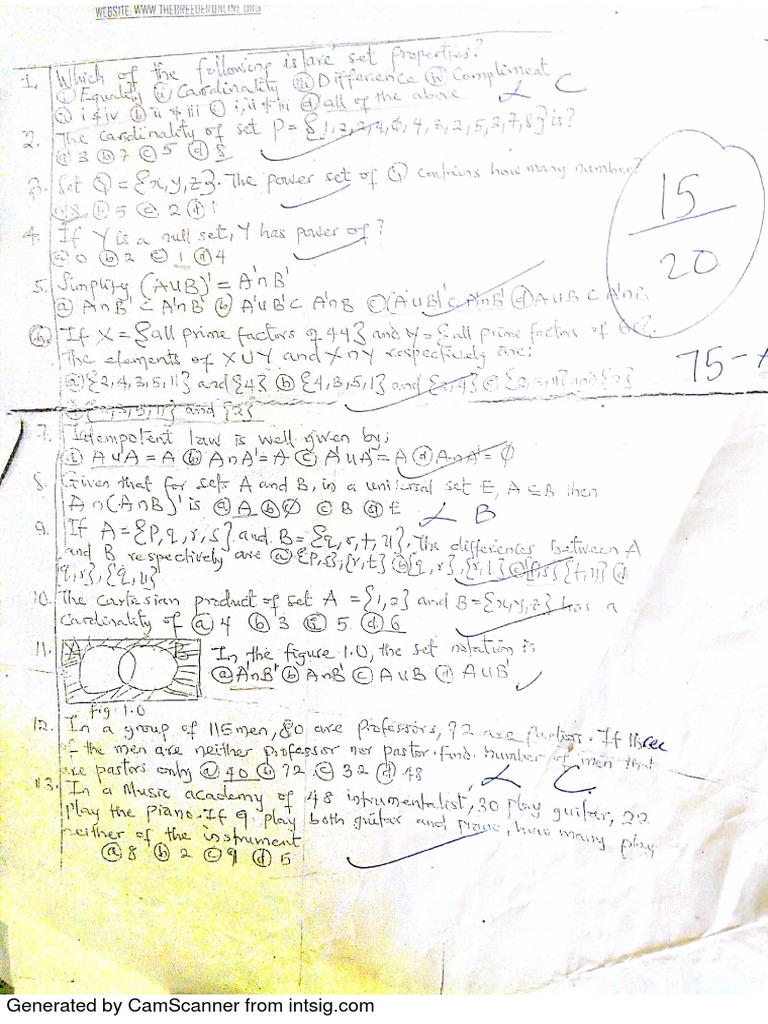 WEBSITE: WWW.THEBREEDERONLINE.ORG
1. Which of the following is/are set properties?
(i) Equality (ii) Cardinality (iii) Difference (iv) Compliment
(a) i & iv (b) ii & iii (c) i, ii & iii (d) all of the above
C
2. The cardinality of set P = {1,2,2,4,6,4,3,2,5,3,7,8} is?
(a) 3 (b) 7 (c) 5 (d) 8
3. Set Q = {x,y,z}. The power set of Q contains how many number?
(a) 8 (b) 5 (c) 2 (d) 1
15
20
4. If Y is a null set, Y has power of?
(a) 0 (b) 2 (c) 1 (d) 4
5. Simplify (AUB)' = A'∩B'
(a) A∩B' ⊂ A'∩B' (b) A'UB' ⊂ A'∩B (c) (AUB)' ⊂ A'∩B' (d) AUB ⊂ A'∩B
6. If X = {all prime factors of 44} and Y = {all prime factors of
The elements of XUY and X∩Y respectively are;
(a) {2,4,3,5,11} and {4} (b) {4,3,5,1} and {3,4} (c) {2,3,11} and {2}
75
and {2}
7. Idempotent law is well given by;
(a) AUA = A (b) A∩A' = A (c) A'UA' = A (d) A∩A' = ∅
8. Given that for sets A and B, in a universal set E, A⊆B then
A∩(A∩B)' is (a) A (b) ∅ (c) B (d) E
B
9. If A = {P,q,r,s} and B = {q,r,t,u}. The differences between A
and B respectively are (a) {P,s},{r,t} (b) {q,r},{r,t} (c) {P,s} {t,u} (d)
{q,r},{q,u}
10. The cartesian product of set A = {1,2} and B = {x,y,z} has a
Cardinality of (a) 4 (b) 3 (c) 5 (d) 6
11. In the figure 1.0, the set notation is
(a) A'∩B' (b) A∩B' (c) AUB (d) AUB'
fig: 1.0
12. In a group of 115 men, 80 are professors, 72 are pastors. If three
of the men are neither professor nor pastor. find number of men that
are pastors only (a) 40 (b) 72 (c) 32 (d) 48
C.
13. In a Music academy of 48 instrumentalist, 30 play guitar, 22
play the piano. If 9 play both guitar and piano, how many play
neither of the instrument
(a) 8 (b) 2 (c) 9 (d) 5
Generated by CamScanner from intsig.com